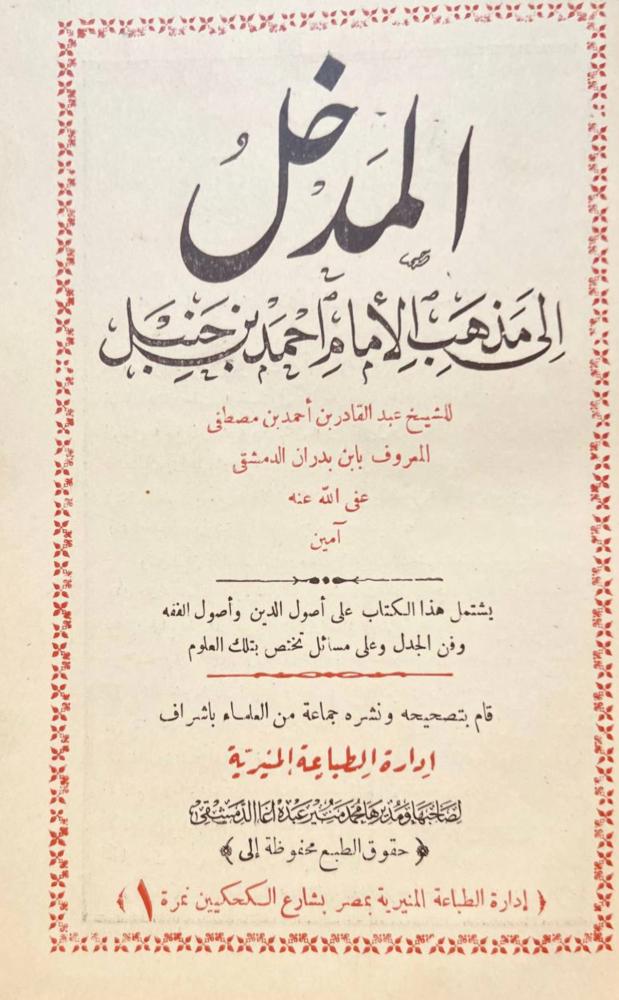 المدخل
إلى مذهب الإمام أحمد بن حنبل
للشيخ عبد القادر بن أحمد بن مصطفى
المعروف بابن بدران الدمشقى
عفى الله عنه
آمين
يشتمل هذا الكتاب على أصول الدين وأصول الفقه
وفن الجدل وعلى مسائل تختص بتلك العلوم
قام بتصحيحه ونشره جماعة من العلماء باشراف
إدارة الطباعة المنيرية
لصاحبها ومديرها محمد منير عبده أغا الدمشقى
﴿ حقوق الطبع محفوظة إلى ﴾
﴿ إدارة الطباعة المنيرية بمصر بشارع الكحكيين نمرة ١ ﴾